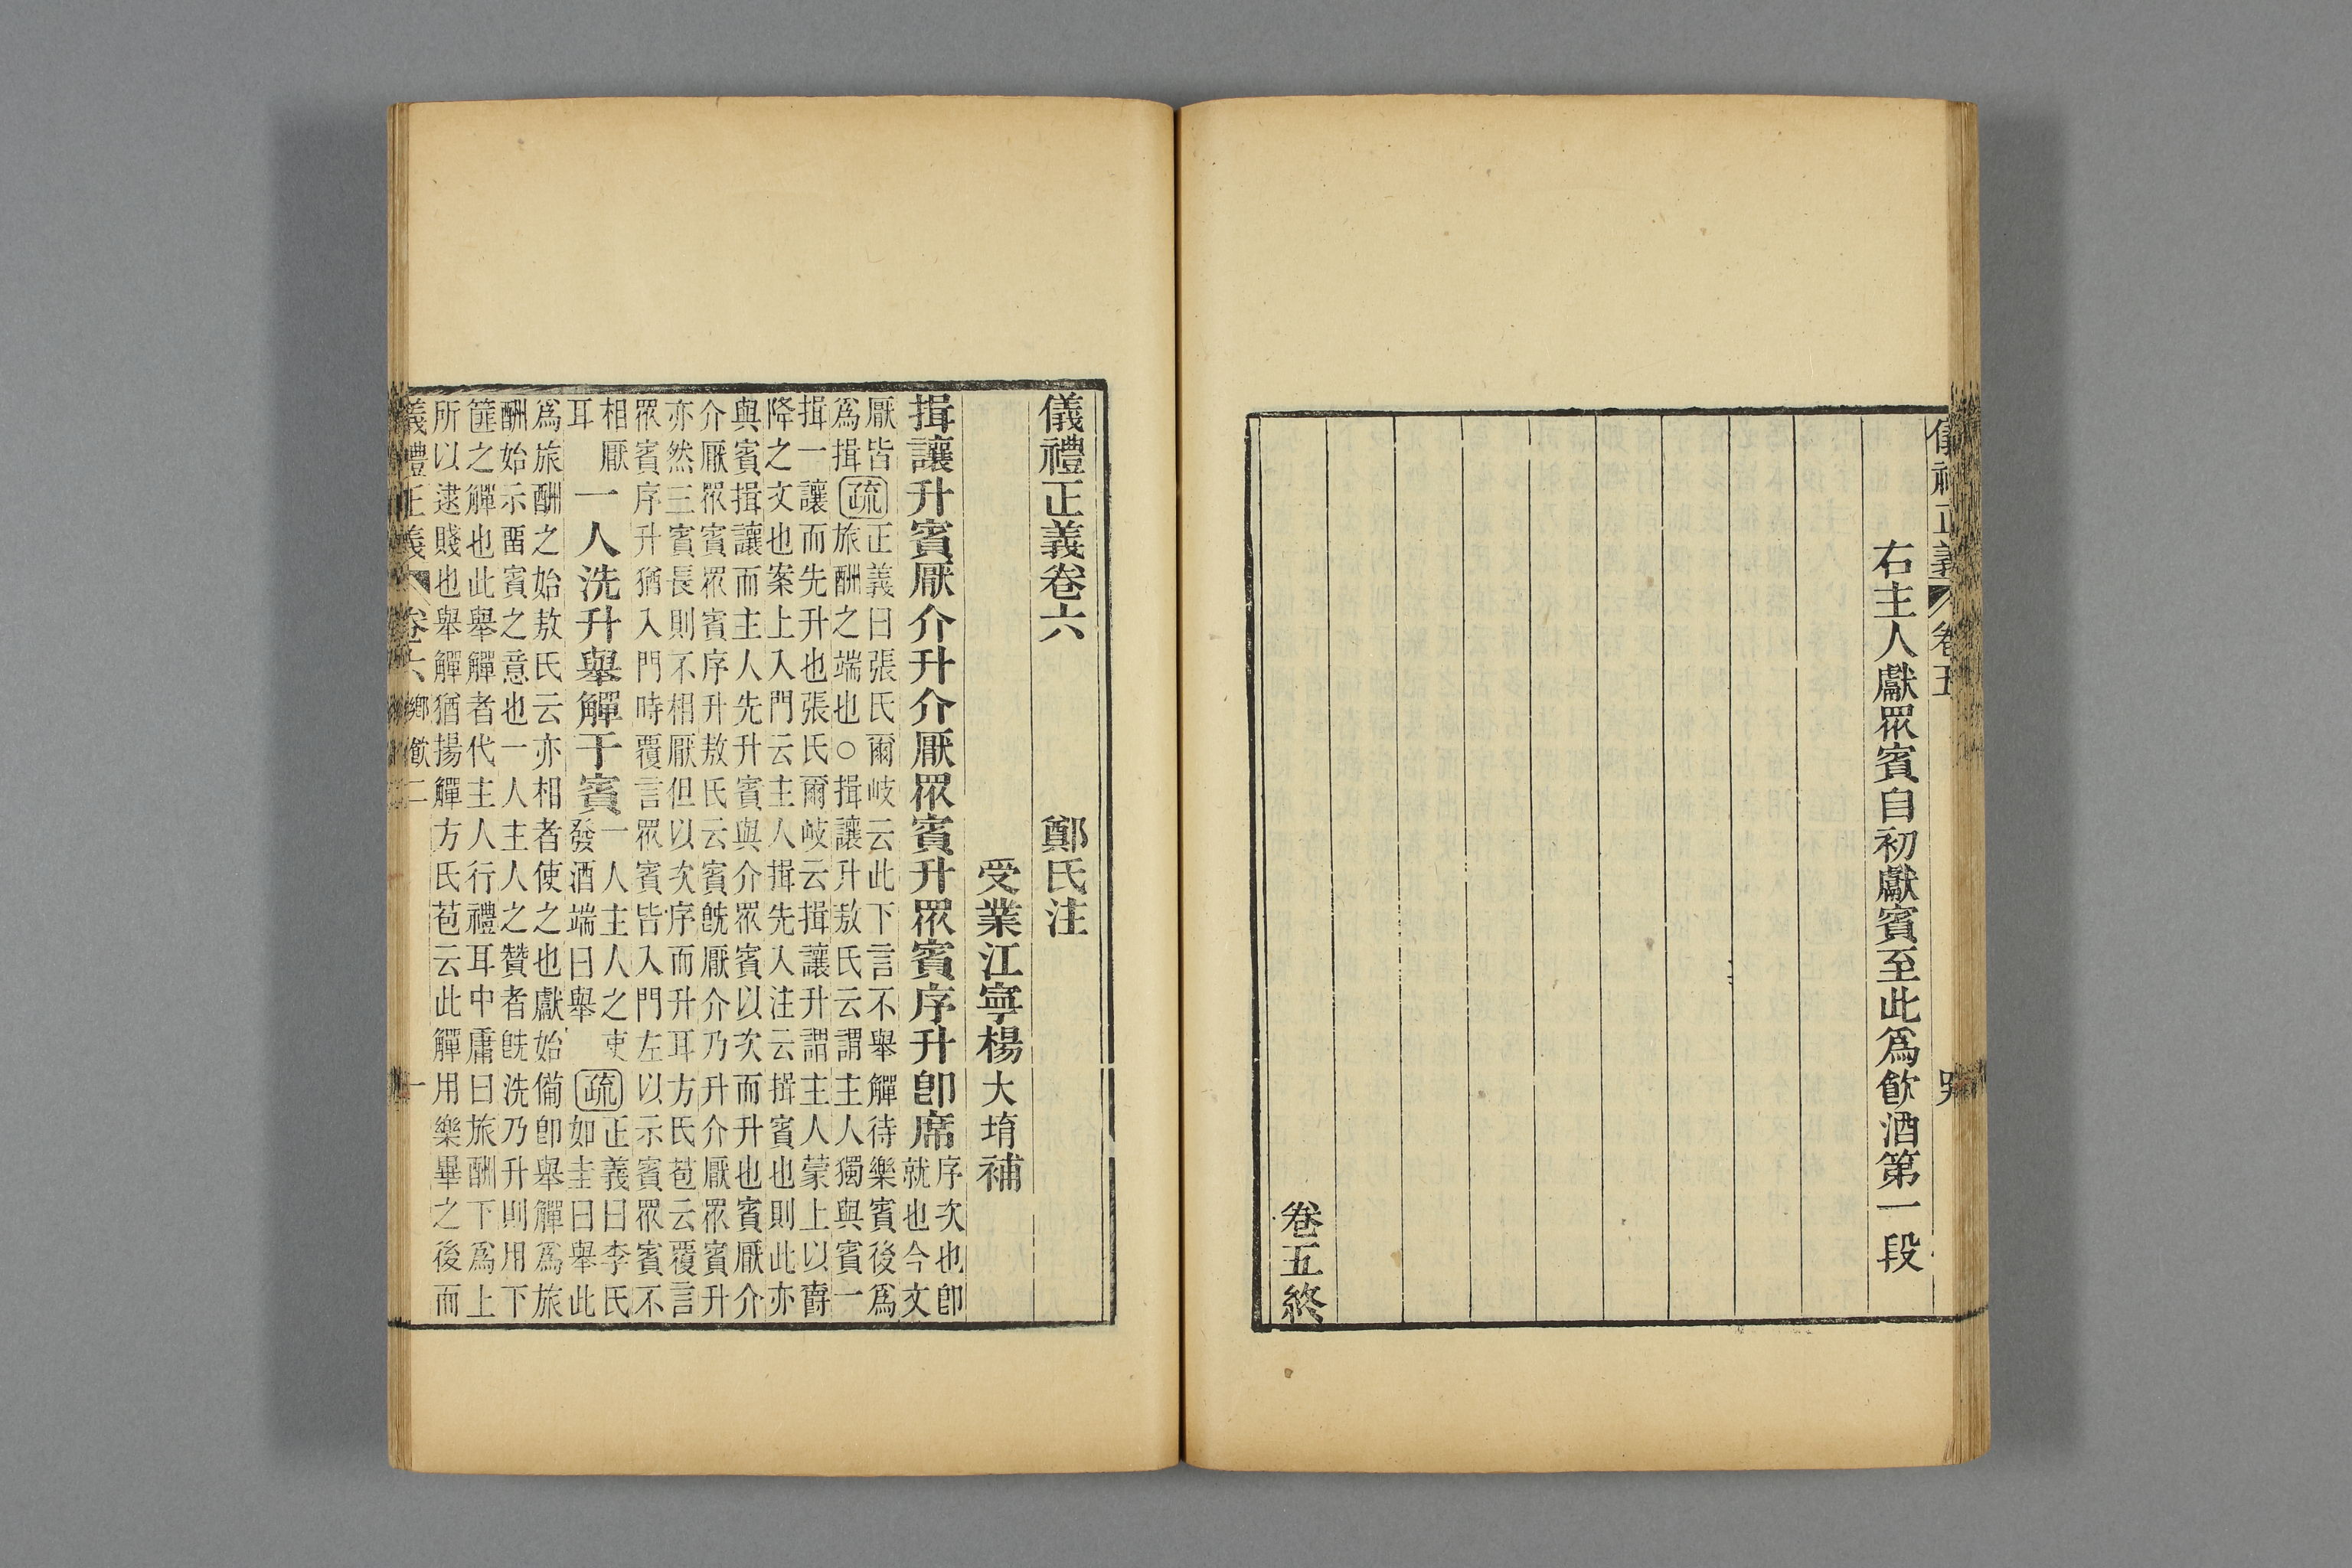 儀禮正義 卷五
右主人獻眾賓自初獻賓至此爲飮酒第一段
卷五終
儀禮正義卷六 鄭氏注
受業江寧楊大堉補
揖讓升賓厭介升介厭眾賓升眾賓序升卽席
序次也卽
就也今文
厭皆
爲揖
疏
正義曰張氏爾岐云此下言不舉觶待樂賓後爲
旅酬之端也○揖讓升敖氏云謂主人獨與賓一
揖一讓而先升也張氏爾岐云揖讓升謂主人蒙上以爵
降之文也案上入門云主人揖先入注云揖賓也則此亦
與賓揖讓而主人先升賓與介眾賓以次而升也賓厭介
介厭眾賓眾賓序升敖氏云賓旣厭介乃升介厭眾賓升
亦然三賓長則不相厭但以次序而升耳方氏苞云覆言
眾賓序升猶入門時覆言眾賓皆入門左以示賓眾賓不
相厭
耳
一人洗升舉觶于賓
一人主人之吏
發酒端曰舉
疏
正義曰李氏
如圭曰舉此
爲旅酬之始敖氏云亦相者使之也獻始備卽舉觶爲旅
酬始示畱賓之意也一人主人之贊者旣洗乃升則用下
篚之觶也此舉觶者代主人行禮耳中庸曰旅酬下爲上
所以逮賤也舉觶猶揚觶方氏苞云此觶用樂畢之後而
儀禮正義 卷六 鄉飮二 一